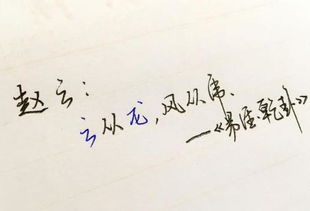 赵云：
云从龙，风从虎。
—《易经乾卦》